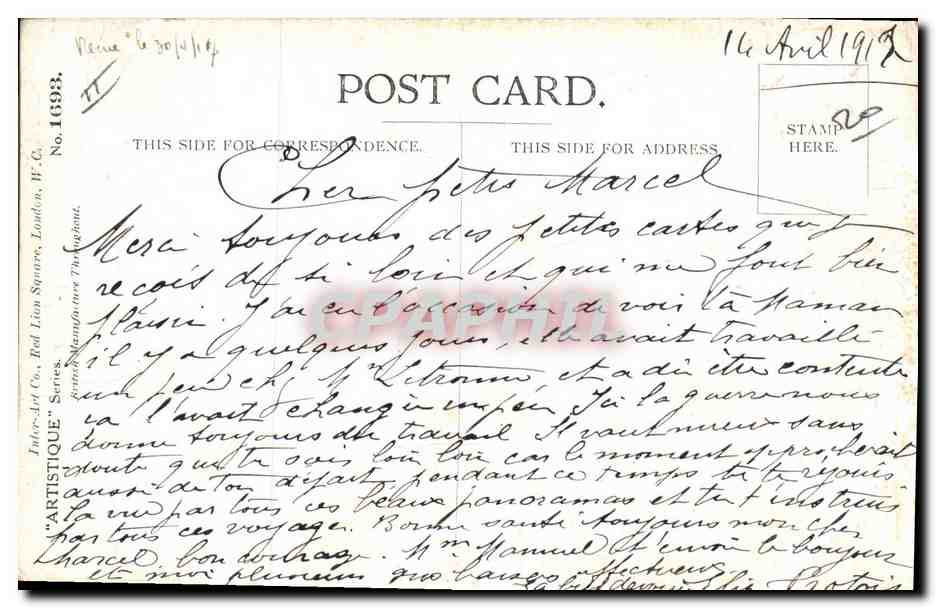 le 30/4/17
14 Avril 1917
POST CARD.
THIS SIDE FOR CORRESPONDENCE.
THIS SIDE FOR ADDRESS
STAMP
HERE.
20
Inter-Art Co., Red Lion Square, London, W.C.
"ARTISTIQUE" Series.
No. 1693.
British Manufacture Throughout.
Cher petit Marcel
Merci toujours des petites cartes que je
reçois de si loin et qui me font bien
plaisir. J'ai eu l'occasion de voir ta Maman
il y a quelques jours, elle avait travaillé
un peu ch, Mr Letronne, et a dû être contente
ça l'avait changée un peu Ici la guerre nous
donne toujours du travail Il vaut mieux sans
doute que tu sois loin loin car le moment approcherait
aussi de ton départ, pendant ce temps tu te réjouis
la vue par tous ces beaux panoramas et tu t'instruis
par tous ces voyages. Bonne santé toujours mon cher
Marcel, bon courage. Mme Manuel t'envoie le bonjour
et moi plusieurs gros baisers affectueux
CPAPHIL